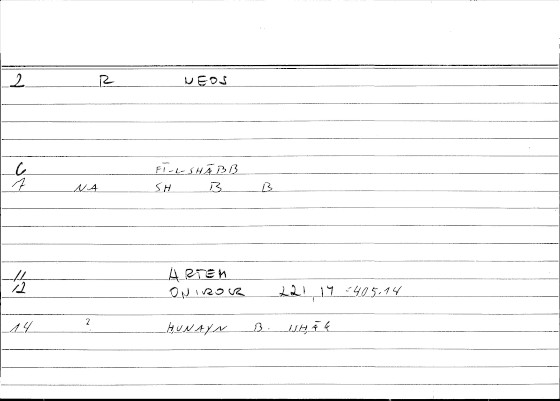 2 R NEOS
6 FĪ-L-SHĀBB
7 NA SH B B
11 ARTEM
12 ONIROCR 221,17 = 405.14
14 ? HUNAYN B. ISḤĀQ